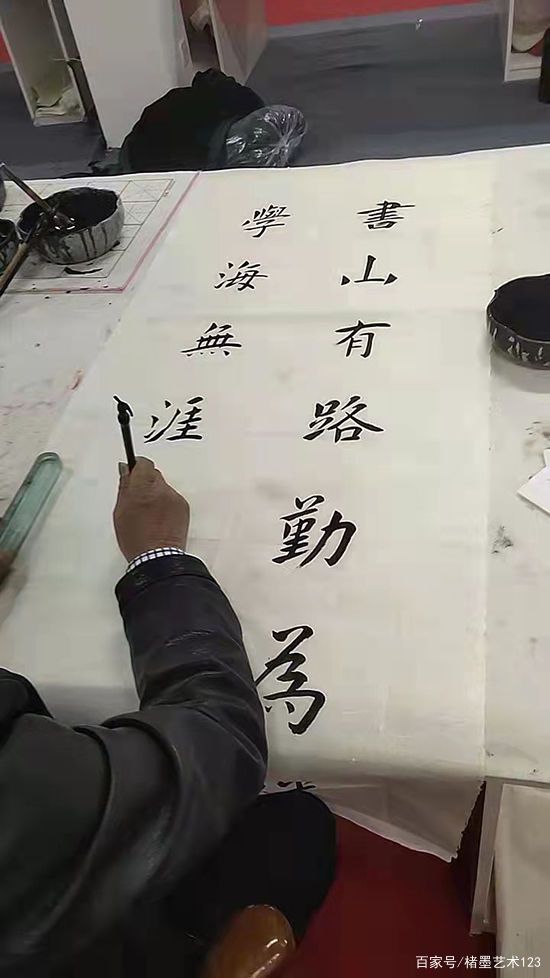 書山有路勤為
學海無涯
百家号/楮墨艺术123